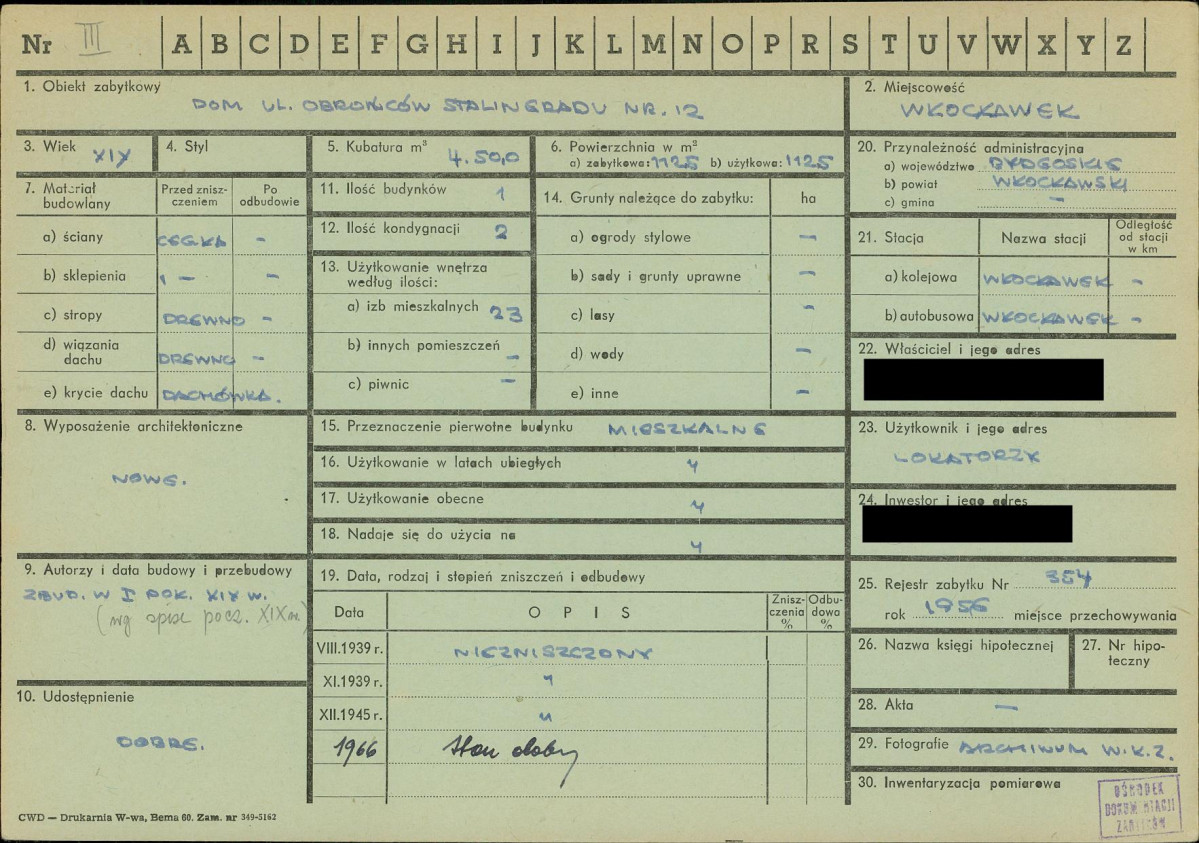 Nr III A B C D E F G H I J K L M N O P R S T U V W X Y Z
1. Obiekt zabytkowy
DOM UL. OBROŃCÓW STALINGRADU NR. 12
2. Miejscowość
WŁOCŁAWEK
3. Wiek XIX
4. Styl
5. Kubatura m³ 4.50,0
6. Powierzchnia w m²
a) zabytkowa: 1125 b) użytkowa: 1125
20. Przynależność administracyjna
a) województwo BYDGOSKIE
b) powiat WŁOCŁAWSKI
c) gmina –
7. Materiał budowlany
Przed znisz-
czeniem
Po
odbudowie
a) ściany CEGŁA –
b) sklepienia – –
c) stropy DREWNO –
d) wiązania
dachu DREWNO –
e) krycie dachu DACHÓWKA.
11. Ilość budynków 1
12. Ilość kondygnacji 2
13. Użytkowanie wnętrza
według ilości:
a) izb mieszkalnych 23
b) innych pomieszczeń –
c) piwnic –
14. Grunty należące do zabytku: ha
a) ogrody stylowe –
b) sady i grunty uprawne –
c) lasy –
d) wody –
e) inne –
21. Stacja Nazwa stacji
Odległość
od stacji
w km
a) kolejowa WŁOCŁAWEK –
b) autobusowa WŁOCŁAWEK –
22. Właściciel i jego adres
8. Wyposażenie architektoniczne
NOWE.
15. Przeznaczenie pierwotne budynku MIESZKALNE
16. Użytkowanie w latach ubiegłych "
17. Użytkowanie obecne "
18. Nadaje się do użycia na "
23. Użytkownik i jego adres
LOKATORZY
24. Inwestor i jego adres
9. Autorzy i data budowy i przebudowy
ZBUD. W I POŁ. XIX W.
(wg spisu pocz. XIX w.)
19. Data, rodzaj i stopień zniszczeń i odbudowy
Data OPIS
Znisz-
czenia
%
Odbu-
dowa
%
VIII.1939 r. NIEZNISZCZONY
XI.1939 r. "
XII.1945 r. "
1966 Stan dobry
25. Rejestr zabytku Nr 354
rok 1956 miejsce przechowywania
26. Nazwa księgi hipotecznej
27. Nr hipo-
teczny
10. Udostępnienie
DOBRE.
28. Akta –
29. Fotografie ARCHIWUM W.K.Z.
30. Inwentaryzacja pomiarowa
OŚRODEK
DOKUMENTACJI
ZABYTKÓW
CWD — Drukarnia W-wa, Bema 60. Zam. nr 349-5162